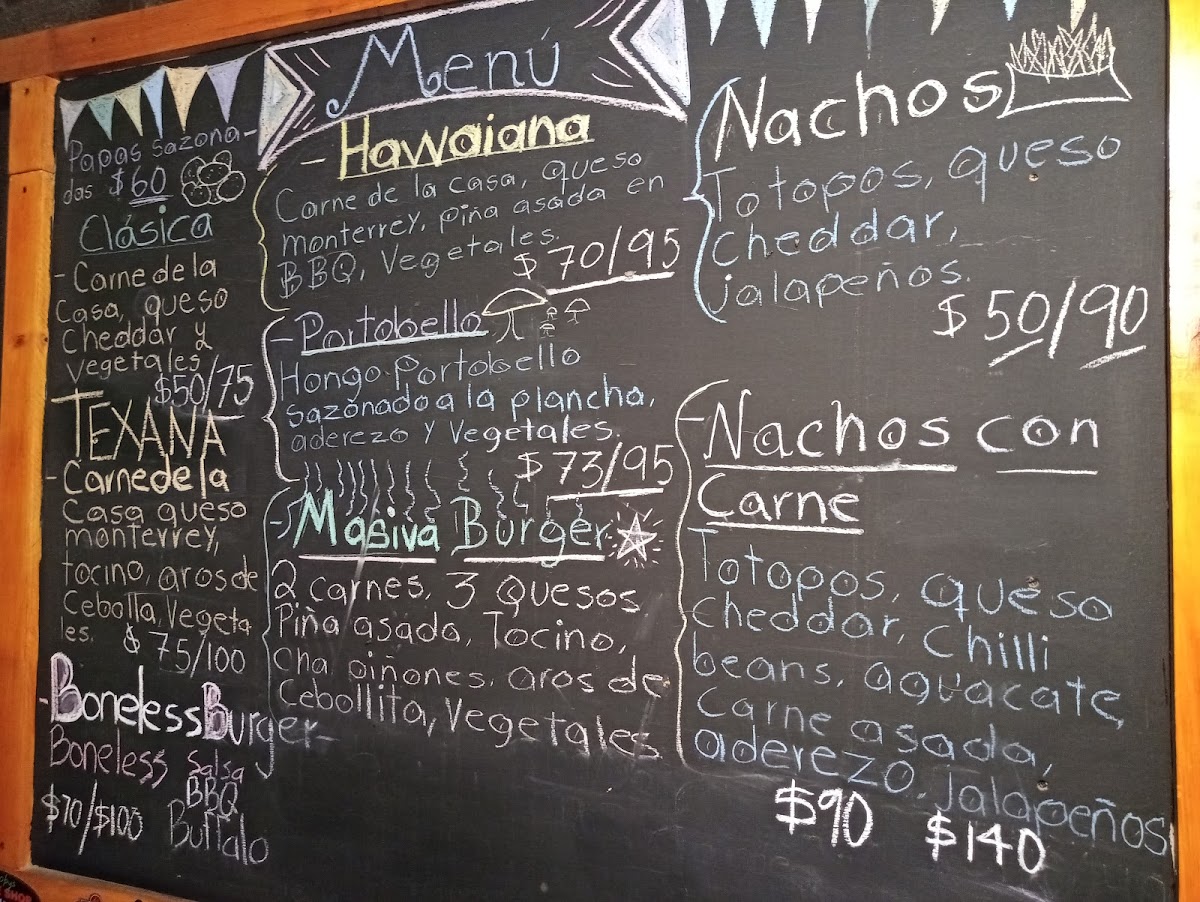 Menú
Papas sazona-
das $60
Clásica
- Carne de la
Casa, queso
Cheddar y
vegetales
$50/75
TEXANA
- Carne de la
Casa queso
monterrey,
tocino, aros de
Cebolla, Vegeta
les.
$75/100
- Boneless Burger-
Boneless Salsa
BBQ
$70/$100 Buffalo
- Hawaiana
Carne de la casa, queso
monterrey, piña asada en
BBQ, Vegetales.
$70/95
- Portobello
Hongo Portobello
sazónado a la plancha,
aderezo y Vegetales.
$73/95
- Masiva Burger
2 carnes, 3 Quesos
Piña asada, Tocino,
Cha piñones, aros de
Cebollita, Vegetales.
Nachos
Totopos, queso
Cheddar,
jalapeños.
$50/90
- Nachos con
Carne
Totopos, queso
Cheddar, Chilli
beans, aguacate,
Carne asada,
aderezo, Jalapeños
$90 $140